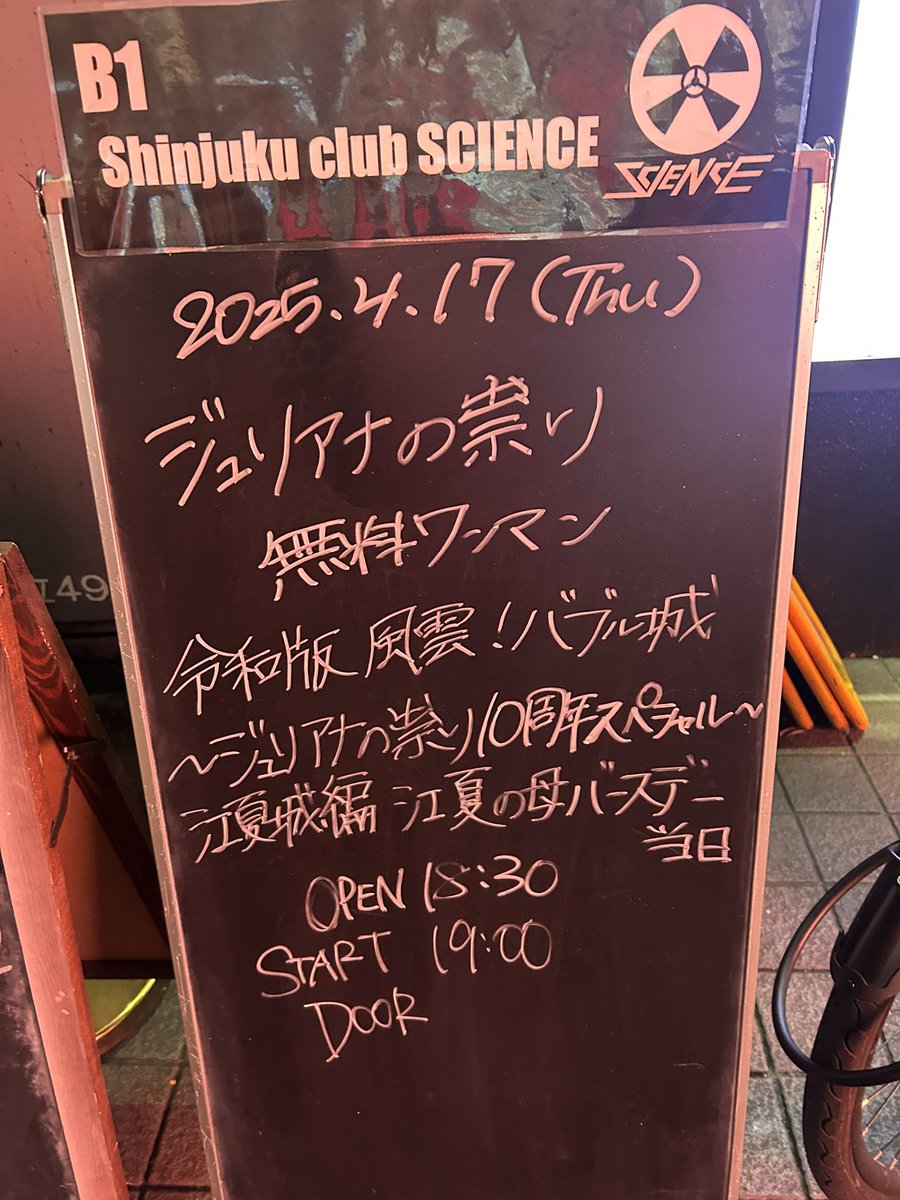 B1
Shinjuku club SCIENCE
SCIENCE
2025.4.17(Thu)
ジュリアナの祟り
無料ワンマン
令和版 風雲!バブル城
~ジュリアナの祟り10周年スペシャル~
江夏城編 江夏の母バースデー
当日
OPEN 18:30
START 19:00
DOOR
江49